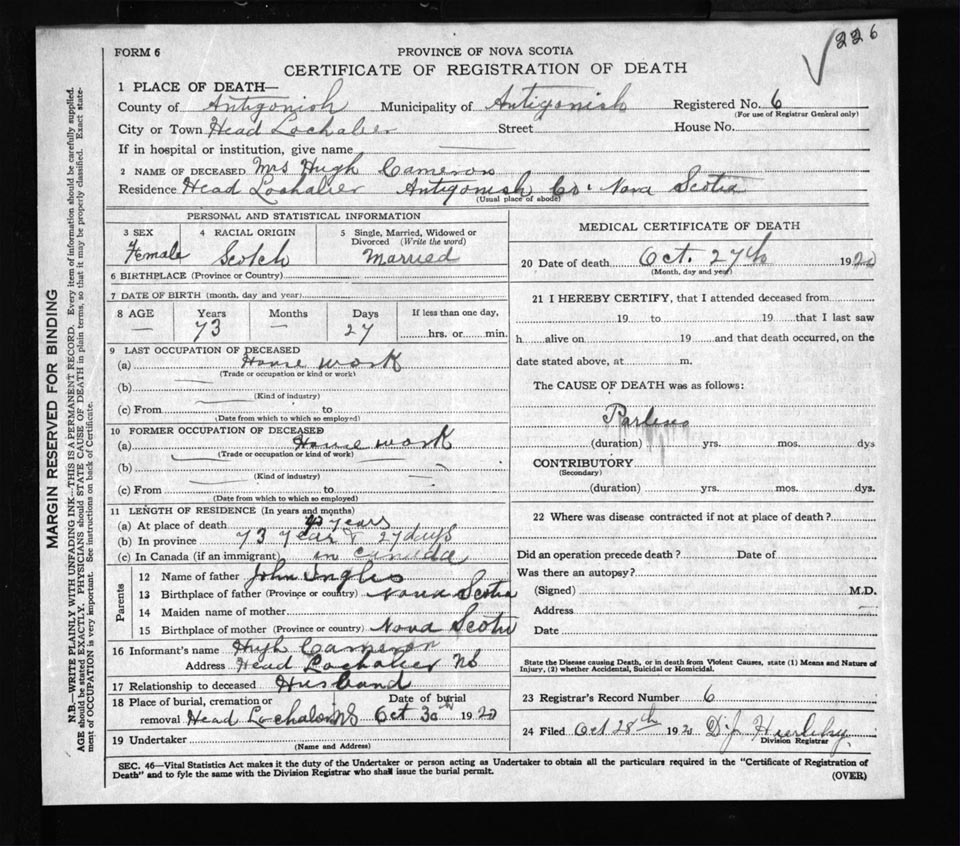 226
FORM 6
PROVINCE OF NOVA SCOTIA
CERTIFICATE OF REGISTRATION OF DEATH
1 PLACE OF DEATH—
County of Antigonish Municipality of Antigonish Registered No. 6
(For use of Registrar General only)
City or Town Head Lochaber Street House No.
If in hospital or institution, give name
2 NAME OF DECEASED Mrs Hugh Cameron
Residence Head Lochaber Antigonish Co. Nova Scotia
(Usual place of abode)
PERSONAL AND STATISTICAL INFORMATION
3 SEX 4 RACIAL ORIGIN 5 Single, Married, Widowed or Divorced (Write the word)
Female Scotch Married
6 BIRTHPLACE (Province or Country)
7 DATE OF BIRTH (month, day and year)
8 AGE Years Months Days If less than one day,
— 73 — 27 hrs. or min.
9 LAST OCCUPATION OF DECEASED
(a) House work
(Trade or occupation or kind or work)
(b)
(Kind of industry)
(c) From to
(Date from which to which so employed)
10 FORMER OCCUPATION OF DECEASED
(a) House work
(Trade or occupation or kind of work)
(b)
(Kind of industry)
(c) From to
(Date from which to which so employed)
11 LENGTH OF RESIDENCE (In years and months)
(a) At place of death years
(b) In province 73 year & 27 days
(c) In Canada (if an immigrant) in Canada
Parents
12 Name of father John Inglis
13 Birthplace of father (Province or country) Nova Scotia
14 Maiden name of mother
15 Birthplace of mother (Province or country) Nova Scotia
16 Informant's name Hugh Cameron
Address Head Lochaber NS
17 Relationship to deceased Husband
18 Place of burial, cremation or Date of burial
removal Head Lochaber NS Oct 30th 1920
19 Undertaker
(Name and Address)
MEDICAL CERTIFICATE OF DEATH
20 Date of death Oct. 27th 1920
(Month, day and year)
21 I HEREBY CERTIFY, that I attended deceased from
19 to 19 that I last saw
h alive on 19 and that death occurred, on the
date stated above, at m.
The CAUSE OF DEATH was as follows:
(duration) yrs. mos. dys
CONTRIBUTORY
(Secondary)
(duration) yrs. mos. dys.
22 Where was disease contracted if not at place of death?
Did an operation precede death? Date of
Was there an autopsy?
(Signed) M.D.
Address
Date
State the Disease causing Death, or in death from Violent Causes, state (1) Means and Nature of
Injury, (2) whether Accidental, Suicidal or Homicidal.
23 Registrar's Record Number 6
24 Filed Oct 28th 1920 D. J.
Division Registrar
SEC. 46—Vital Statistics Act makes it the duty of the Undertaker or person acting as Undertaker to obtain all the particulars required in the "Certificate of Registration of
Death" and to fyle the same with the Division Registrar who shall issue the burial permit.
(OVER)
MARGIN RESERVED FOR BINDING
N.B.—WRITE PLAINLY WITH UNFADING INK—THIS IS A PERMANENT RECORD. Every item of information should be carefully supplied.
AGE should be stated EXACTLY. PHYSICIANS should STATE CAUSE OF DEATH in plain terms, so that it may be properly classified. Exact state-
ment of OCCUPATION is very important. See instructions on back of Certificate.